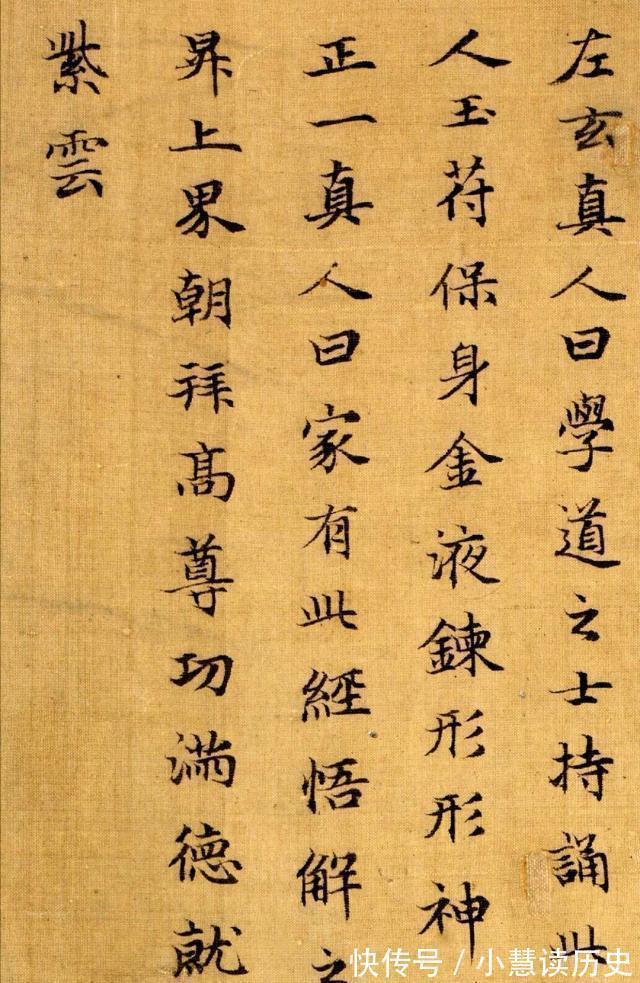 左玄真人曰學道之士持誦此
人玉苻保身金液鍊形形神
正一真人曰家有此經悟解之
昇上界朝拜髙尊功滿德就
紫雲
快传号 / 小慧读历史